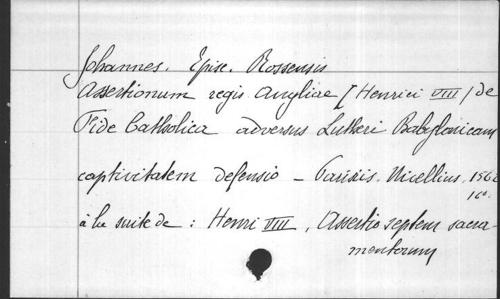 Johannes. Episc. Rossensis
Assertionum regis Angliae [Henrici VIII] de
Fide Catholica adversus Lutheri Babylonicam
captivitatem defensio — Parisis. Nicellius,
16°.
à la suite de : Henri VIII, Assertio septem sacra-
mentorum